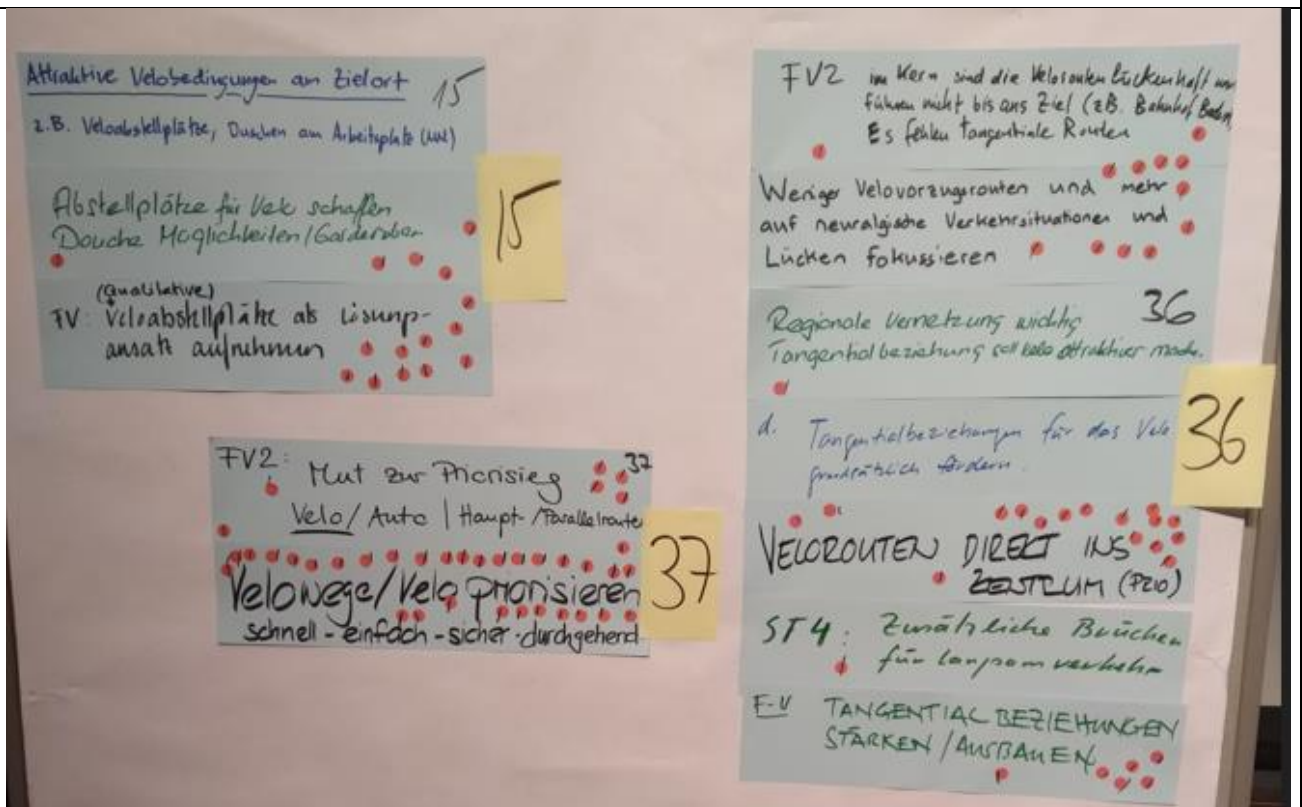 Attraktive Velobedingungen am Zielort 15
z.B. Veloabstellplätze, Duschen am Arbeitsplatz
Abstellplätze für Velo schaffen
Douche Möglichkeiten/Garderoben
(Qualitative)
FV: Veloabstellplätze als Lösungs-
ansatz aufnehmen
15
FV2: Mut zur Priorisieg 37
Velo/Auto | Haupt-/Parallelroute
Velowege/Velo priorisieren
schnell - einfach - sicher - durchgehend
37
FV2 im Kern sind die Velorouten lückenhaft
führen nicht bis ans Ziel (z.B. Bahnhof Baden,
Es fehlen tangentiale Routen
Weniger Velovorzugsrouten und mehr
auf neuralgische Verkehrsituationen und
Lücken fokussieren
Regionale Vernetzung wichtig 36
Tangentialbeziehung soll Velo attraktiver mache.
d. Tangentialbeziehungen für das Velo
grundsätzlich fördern.
36
VELOROUTEN DIREKT INS
ZENTRUM (PRIO)
ST4: Zusätzliche Brücken
für Langsamverkehr
F-V TANGENTIALBEZIEHUNGEN
STÄRKEN/AUSBAUEN